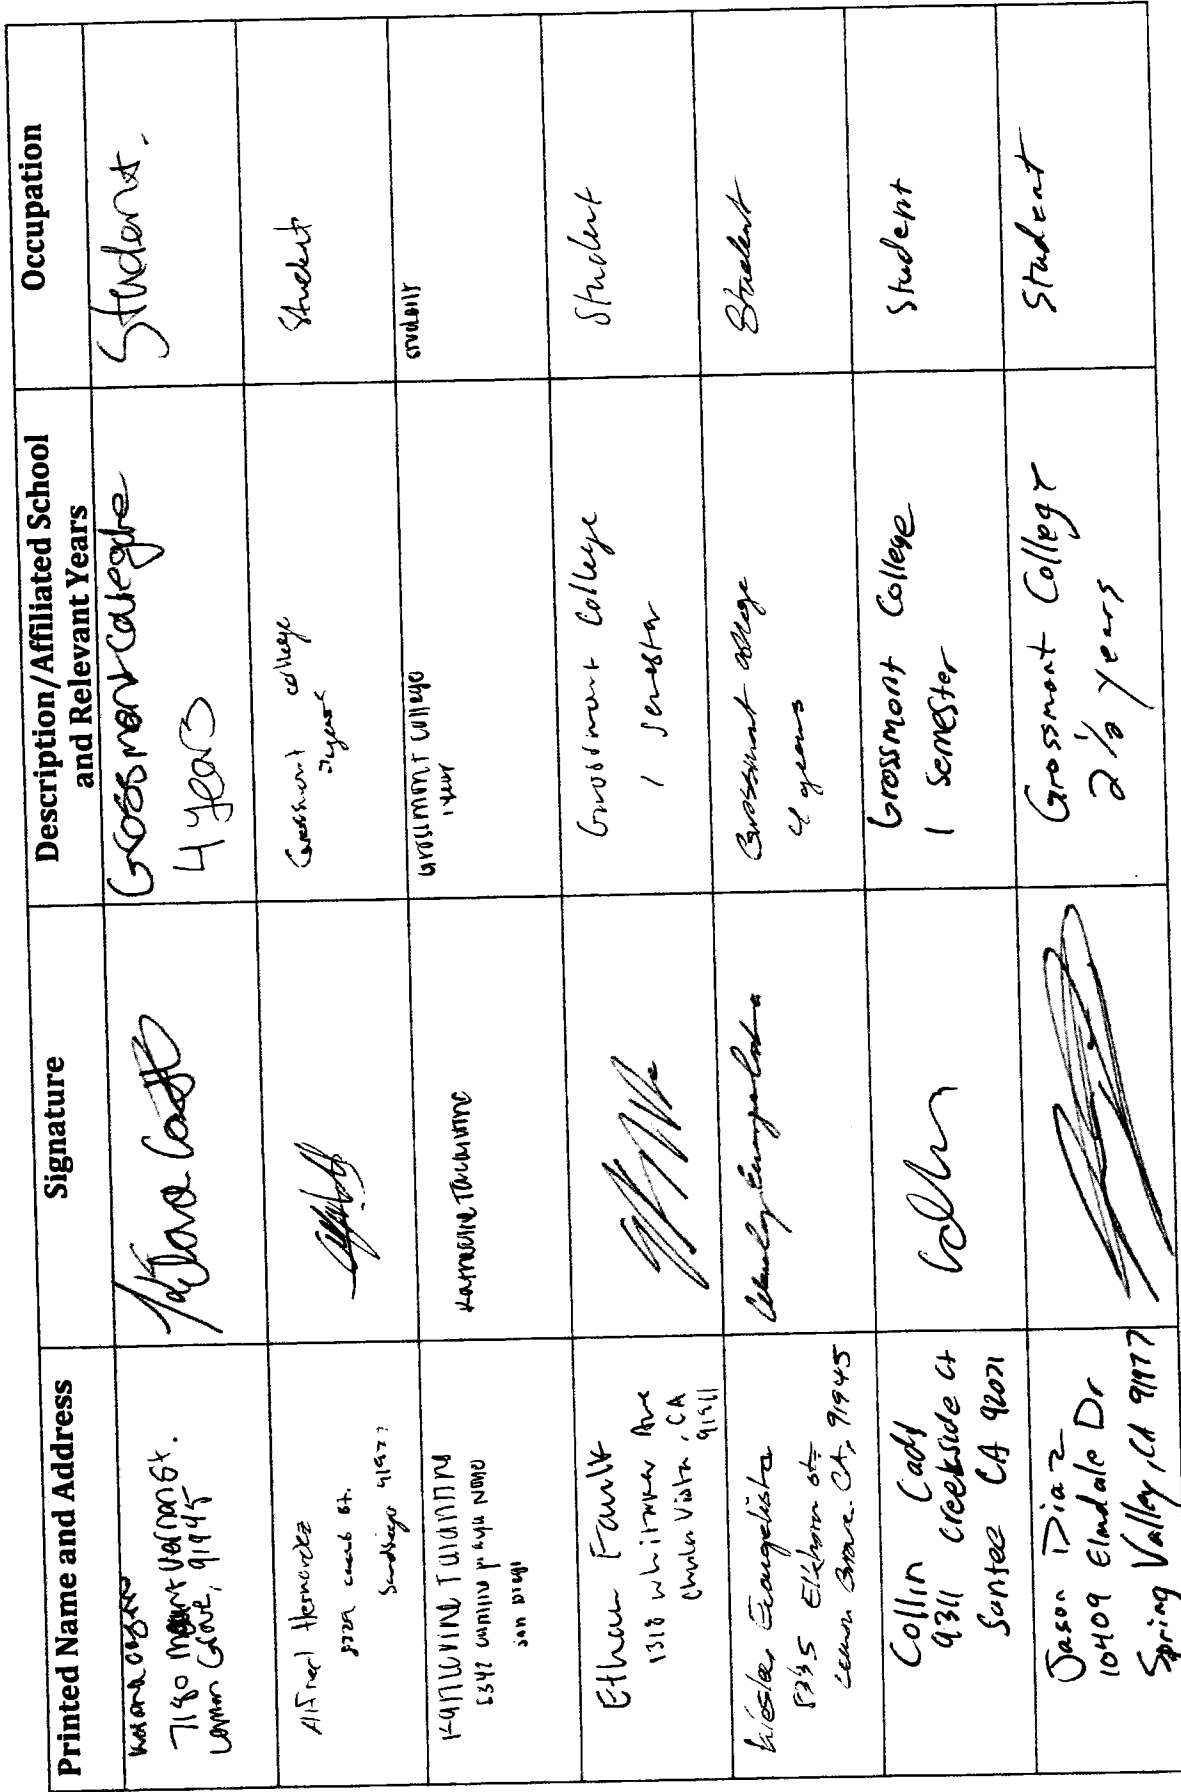 Printed Name and Address
Signature
Description/Affiliated School
and Relevant Years
Occupation
7180 Mount Vernon St.
Lemon Grove, 91945
Grossmont College
4 years
Student.
Alfred Hernandez
St.
Sandiego
Grossmont college
years
Student
San Diego
Grossmont College
1 year
student
Ethan Faulk
1318 Whitaker Ave
Chula Vista, CA
91911
Grossmont College
1 semester
Student
Kiesler Evangelista
8335 Elkhorn St.
Lemon Grove. CA, 91945
Grossmont College
4 years
Student
Collin Cady
9311 Creekside Ct
Santee CA 92071
Grossmont College
1 Semester
Student
Jason Diaz
10409 Elmdale Dr
Spring Valley, CA 91977
Grossmont College
2 1/2 years
Student